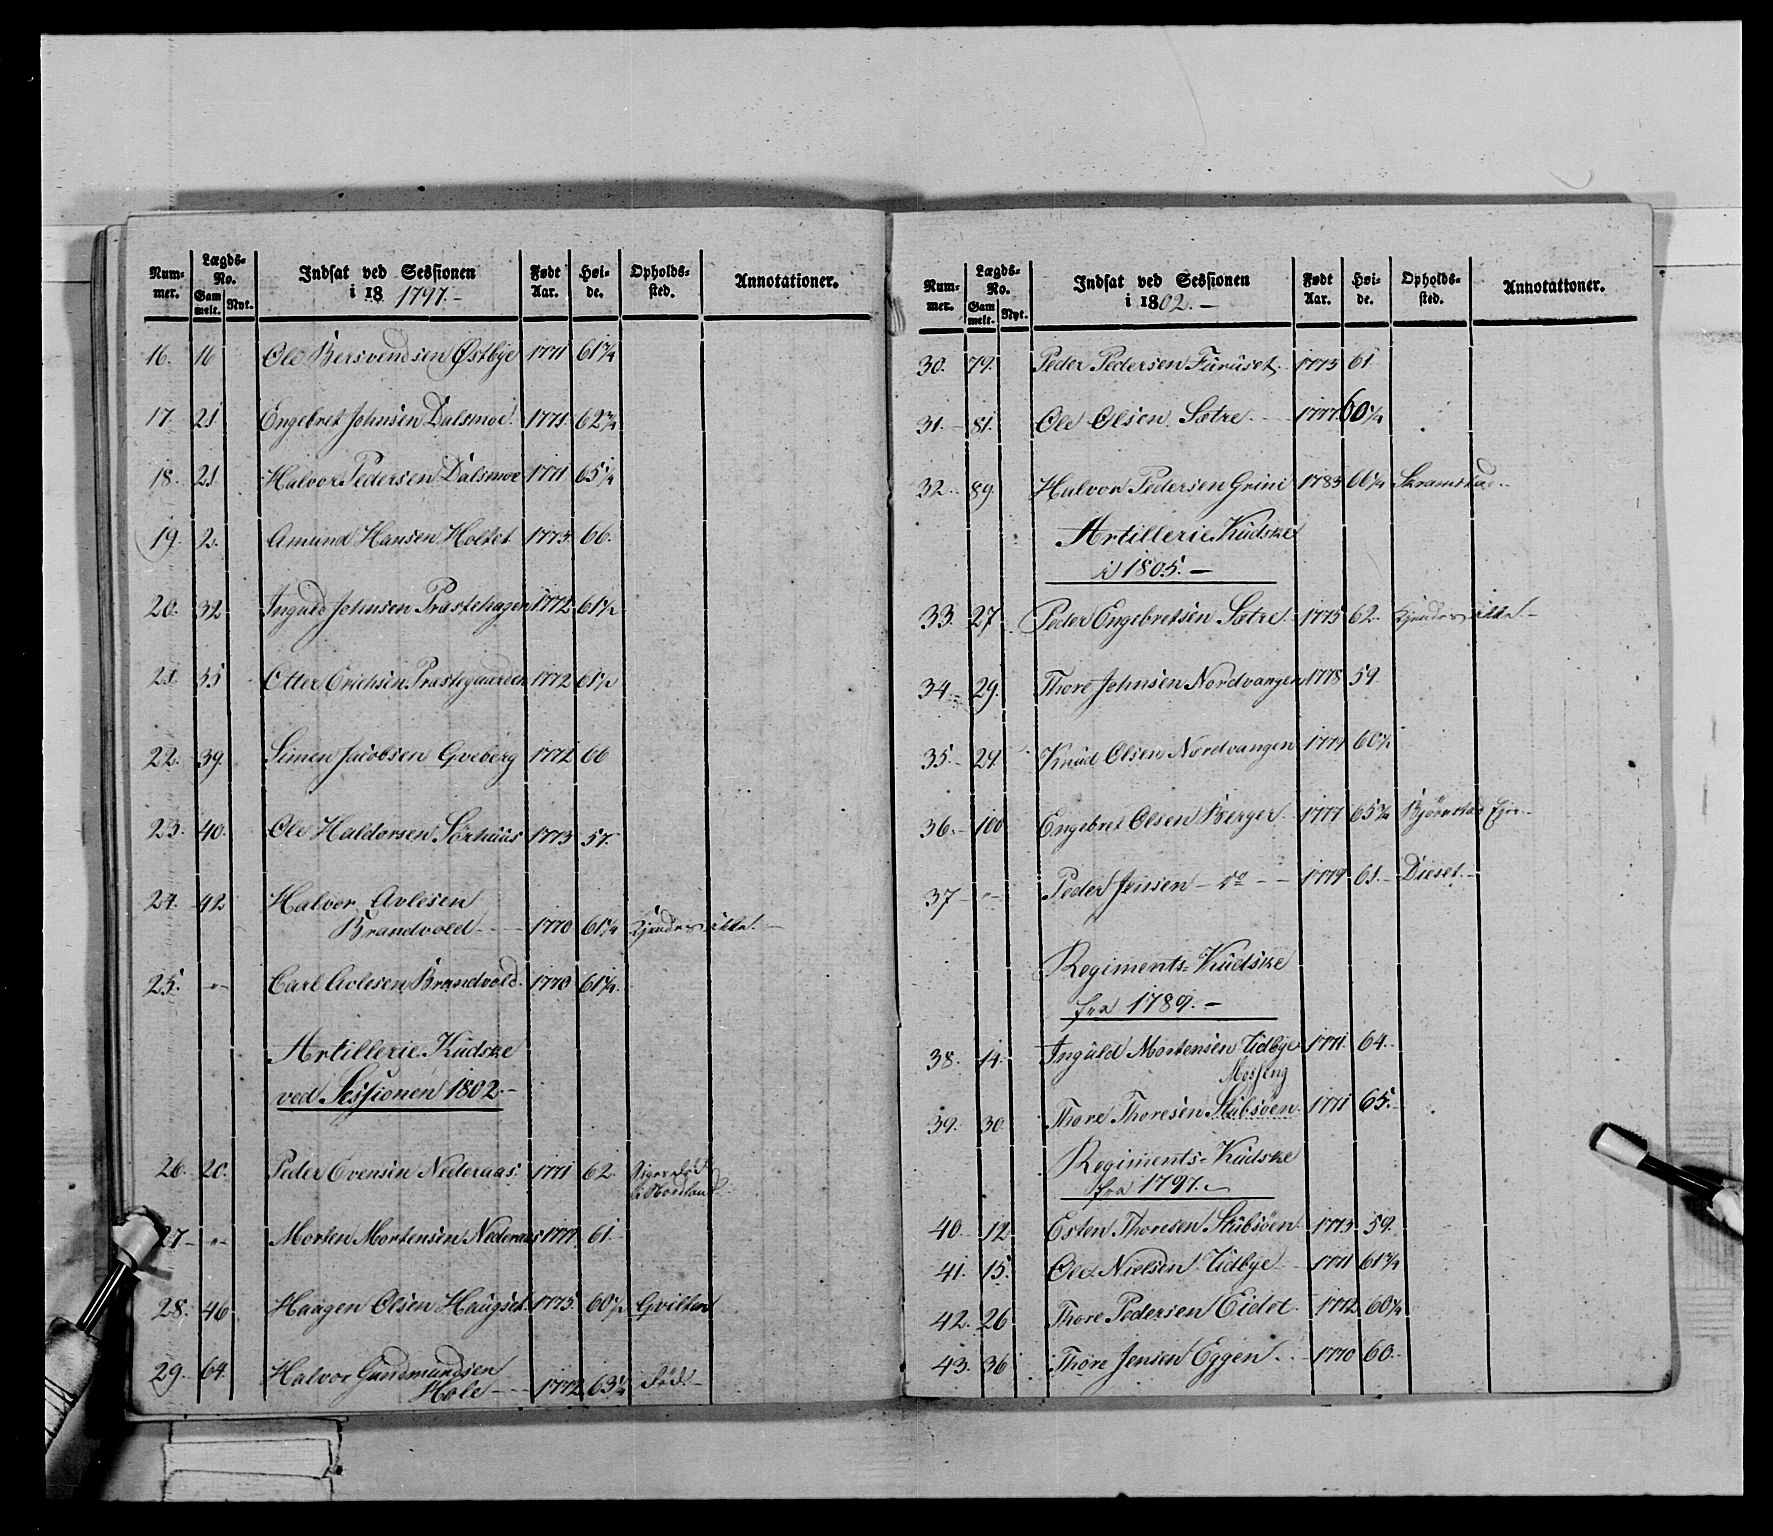 Num-mer. Lægds-No. Gammelt. Nyt. Indsat ved Sessionen i 18 1797.- Født Aar. Høi-de. Opholds-sted. Annotationer.
16. 16 Ole Bersvendsen Østbye 1771 61¾
17. 21 Engebret Johnsen Dalsmoe. 1771. 62¾
18. 21 Halvor Pedersen Dalsmoe 1771 65¼
19. 2. Amund Hansen Holtet 1773. 66.
20. 32 Inguld Johnsen Præstehagen 1772 61½
21. 35 Otter Erichsen Præstegaarden 1772 61½
22. 39. Simen Jacobsen Gveberg 1772 66
23. 40. Ole Haldorsen Sørhuus 1773 57.
24. 42 Halvor Avlesen
Brandvold - - 1770 61¼ Kjendes ikke. -
25. -"- Carl Avlesen Brandvold. 1770 61¼.
Artillerie Kudske
ved Sessionen 1802.-
26. 20. Peder Evensen Nederaas. 1771 62.
i Nordland
27 -"- Morten Mortensen Nederaas 1777. 61.
28. 46. Haagen Olsen Haugset. 1775. 60½ Gvilten
29. 64. Halvor Gundmundsen
Hole - - - 1772 63¼ død. -
Num-mer. Lægds-No. Gammelt. Nyt. Indsat ved Sessionen i 1802. - Født Aar. Høi-de. Opholds-sted. Annotationer.
30. 79. Peder Pedersen Furuset. 1773 61.
31. - 81. Ole Olsen Sætre. - - 1777. 60¼
32. 89. Halvor Pedersen Grini 1783 66¼ Skramstad..
Artillerie Kudske
i 1805. -
33. 27 Peder Engebretsen Sætre. 1775 62. Kjendes ikke. -
34. - 29. Thore Johnsen Nordvangen 1778 59.
35. - 29. Knud Olsen Nordvangen 1777 60½
36. - 100 Engebret Olsen Berger. 1777 65¾ Bjørnstad Eier. -
37 - -"- Peder Jensen - do - - 1779 61. - Dieset -
Regiments-Kudske
fra 1789. -
38. 14. Inguld Mortensen Udbye 1771. 64.
Mosseng
39. 30. Thore Thoresen Stubsøen. 1771 65. -
Regiments-Kudske
fra 1797. -
40. 12 Esten Thoresen Stubsøen. 1773 59.
41. 15. Ole Nielsen Udbye 1771 61¾
42. 26 Thore Pedersen Eidet. 1772 60¼
43. 36 Thore Jensen Eggen. .. 1770 60.